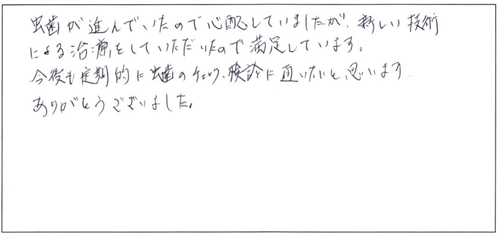 虫歯が進んでいたので心配していましたが、新しい技術
による治療をしていただいたので満足しています。
今後も定期的に虫歯のチェック、検診に通いたいと思います
ありがとうございました。